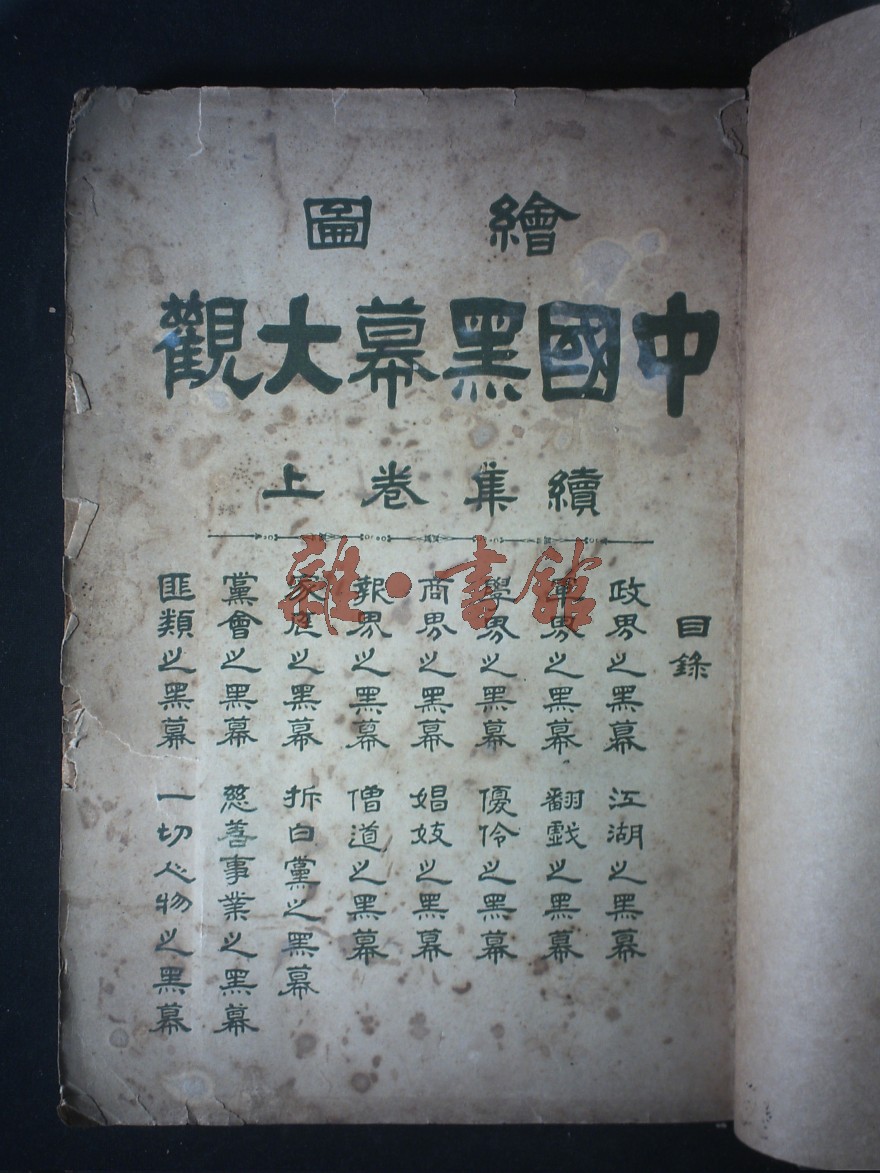 繪圖
中國黑幕大觀
續集卷上
目錄
政界之黑幕
江湖之黑幕
軍界之黑幕
翻戲之黑幕
學界之黑幕
優伶之黑幕
商界之黑幕
娼妓之黑幕
報界之黑幕
僧道之黑幕
家庭之黑幕
拆白黨之黑幕
黨會之黑幕
慈善事業之黑幕
匪類之黑幕
一切人物之黑幕
雜·書館